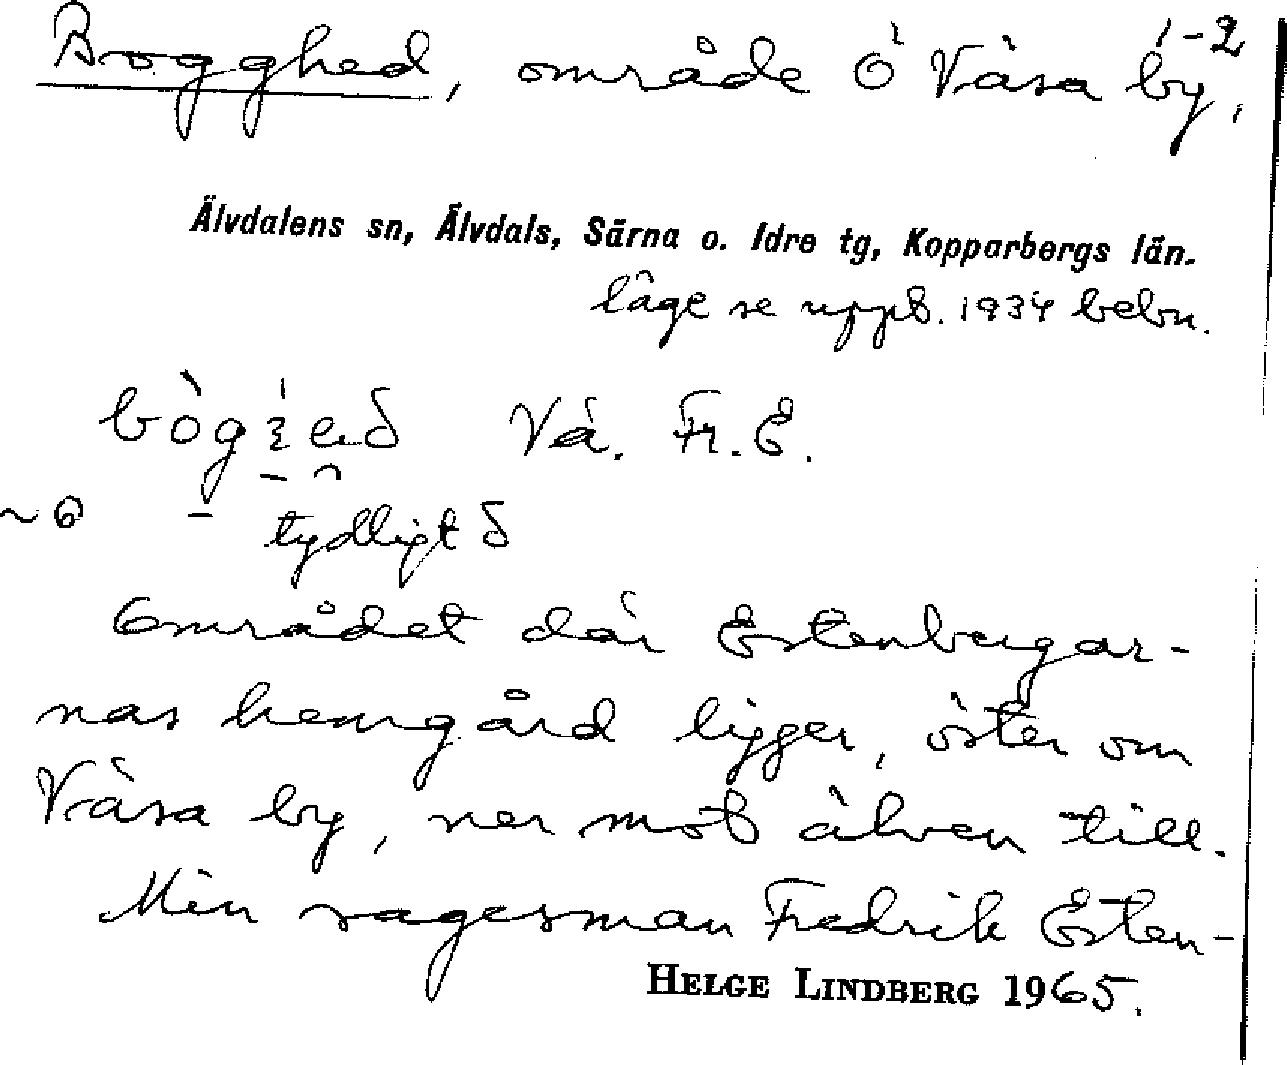 Bogghed, område Ö Våsa by, 1-2
Älvdalens sn, Älvdals, Särna o. Idre tg, Kopparbergs län.
läge se uppt. 1934 bebn.
Vå. Fr. E.
tydligt δ
Området där Estenbergar-
nas hemgård ligger, öster om
Våsa by, ner mot älven till.
Min sagesman Fredrik Esten-
HELGE LINDBERG 1965.